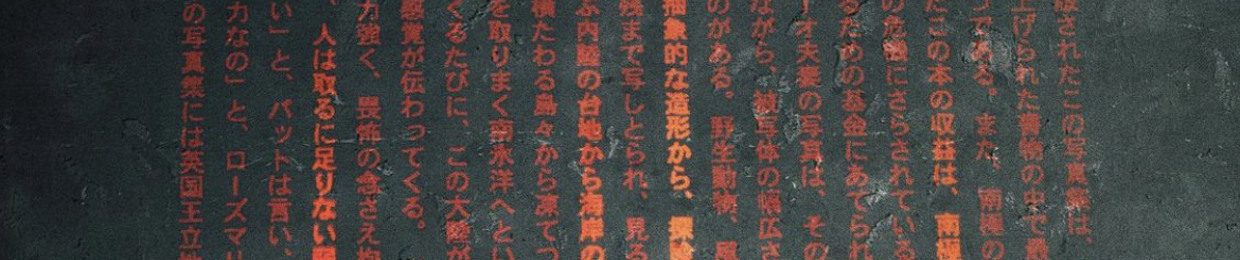 されたこの写真集は、
上げられた書物の中で最
つである。また、南極の
たこの本の収益は、南極
の危機にさらされている
るための基金にあてられ
オ夫妻の写真は、その
ながら、被写体の幅広さ
のがある。野生動物、風
抽象的な造形から、探険
残まで写しとられ、見る
ぶ内陸の台地から海岸の
横たわる島々から凍てつ
を取りまく南氷洋へとい
くるたびに、この大陸が
感覚が伝わってくる。
力強く、畏怖の念さえ抱
、人は取るに足りない
い」と、パットは言い、
力なの」と、ローズマリ
の写真集には英国王立地